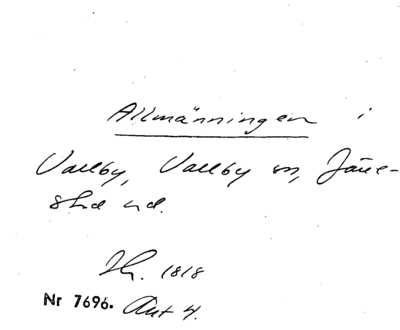 Allmänningen i
Vallby, Vallby sn, Järre-
stad hd.
Ht. 1818
Nr 7696. Akt 4.